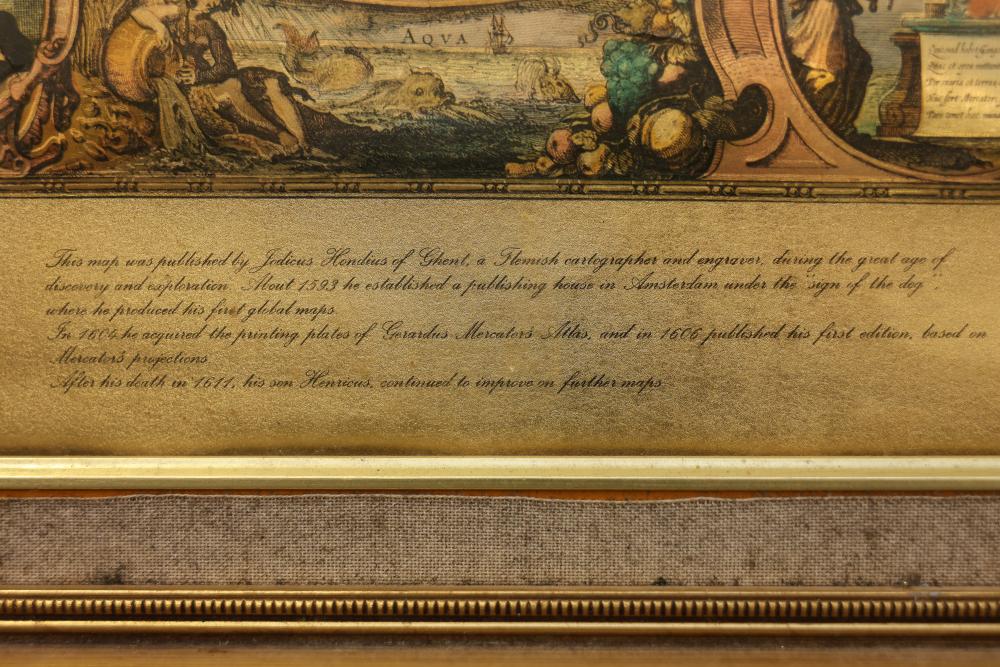 AQVA
This map was published by Jodicus Hondius of Ghent, a Flemish cartographer and engraver, during the great age of
discovery and exploration. About 1593 he established a publishing house in Amsterdam under the "sign of the dog",
where he produced his first global maps.
In 1604 he acquired the printing plates of Gerardus Mercator's Atlas, and in 1606 published his first edition, based on
Mercator's projections.
After his death in 1611, his son Henricus, continued to improve on further maps.